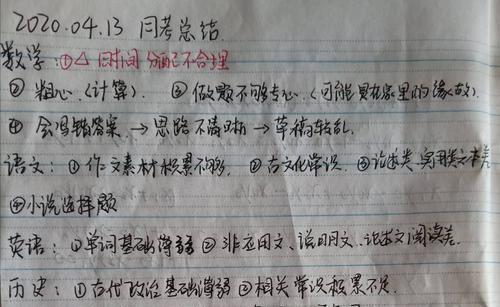 2020.04.13 月考总结.
数学:①△时间分配不合理
② 粗心.(计算). ③ 做题不够专心.(可能是在家里的缘故).
④ 会写错答案. → 思路不清晰 → 草稿较乱.
语文: ① 作文素材积累不够. ② 古文化常识. ③论述类、实用类文本差
④小说选择题
英语: ①单词基础薄弱 ② 非应用文、说明文、论述文阅读差.
历史: ①古代政治基础薄弱 ②相关常识积累不足.